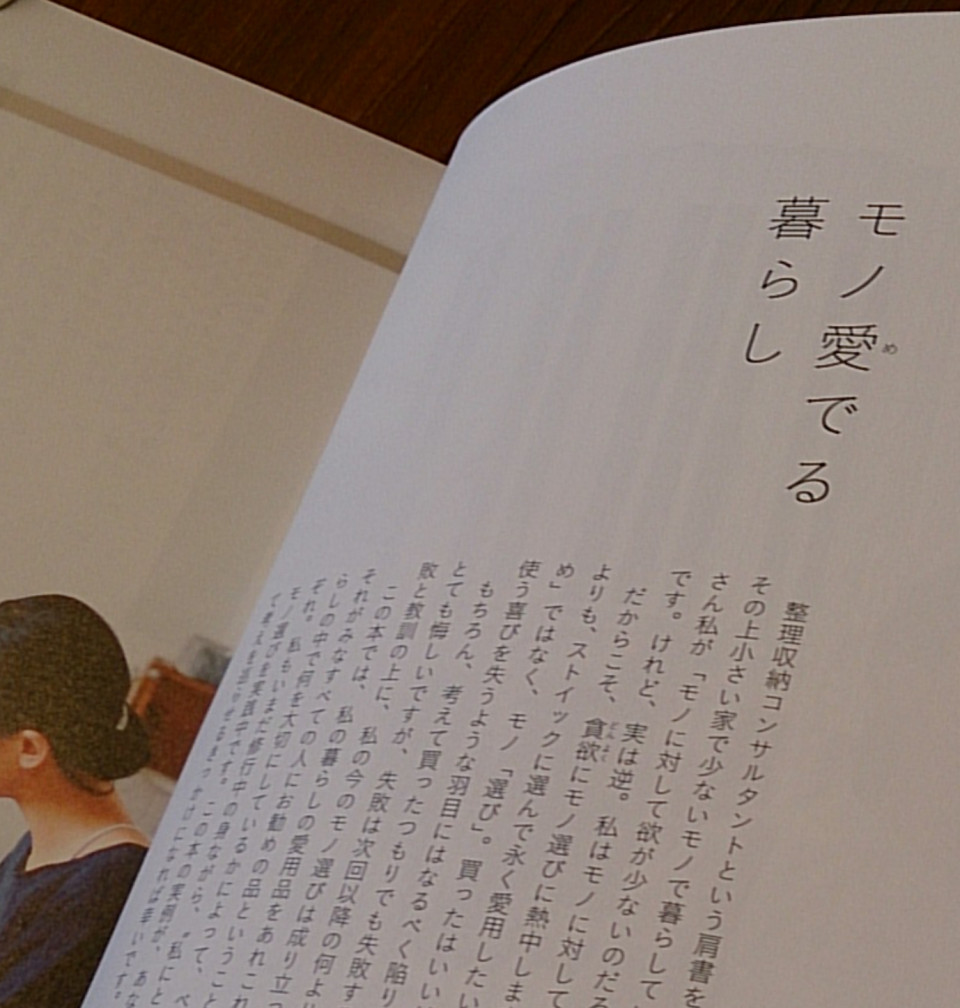 モノ愛でる
め
暮らし
整理収納コンサルタントという肩書を
その上小さい家で少ないモノで暮らして
さん私が「モノに対して欲が少ないのだろ
です。けれど、実は逆。私はモノに対して
だからこそ、貪欲にモノ選びに熱中しま
どんよく
よりも、ストイックに選んで永く愛用したい
め」ではなく、モノ「選び」。買ったはいい
使う喜びを失うような羽目にはなるべく陥り
もちろん、考えて買ったつもりでも失敗す
とても悔しいですが、失敗は次回以降の何より
敗と教訓の上に、私の今のモノ選びは成り立つ
この本では、私の暮らしの愛用品をあれこれ
それがみなすべての人にお勧めの品ということ
らしの中で何を大切にしているかによって、
それ。私もいまだ修行中の身ながら、“私にと
モノ選びを実践中です。この本の実例が、あな
て考えを巡らせるきっかけになれば幸いです。